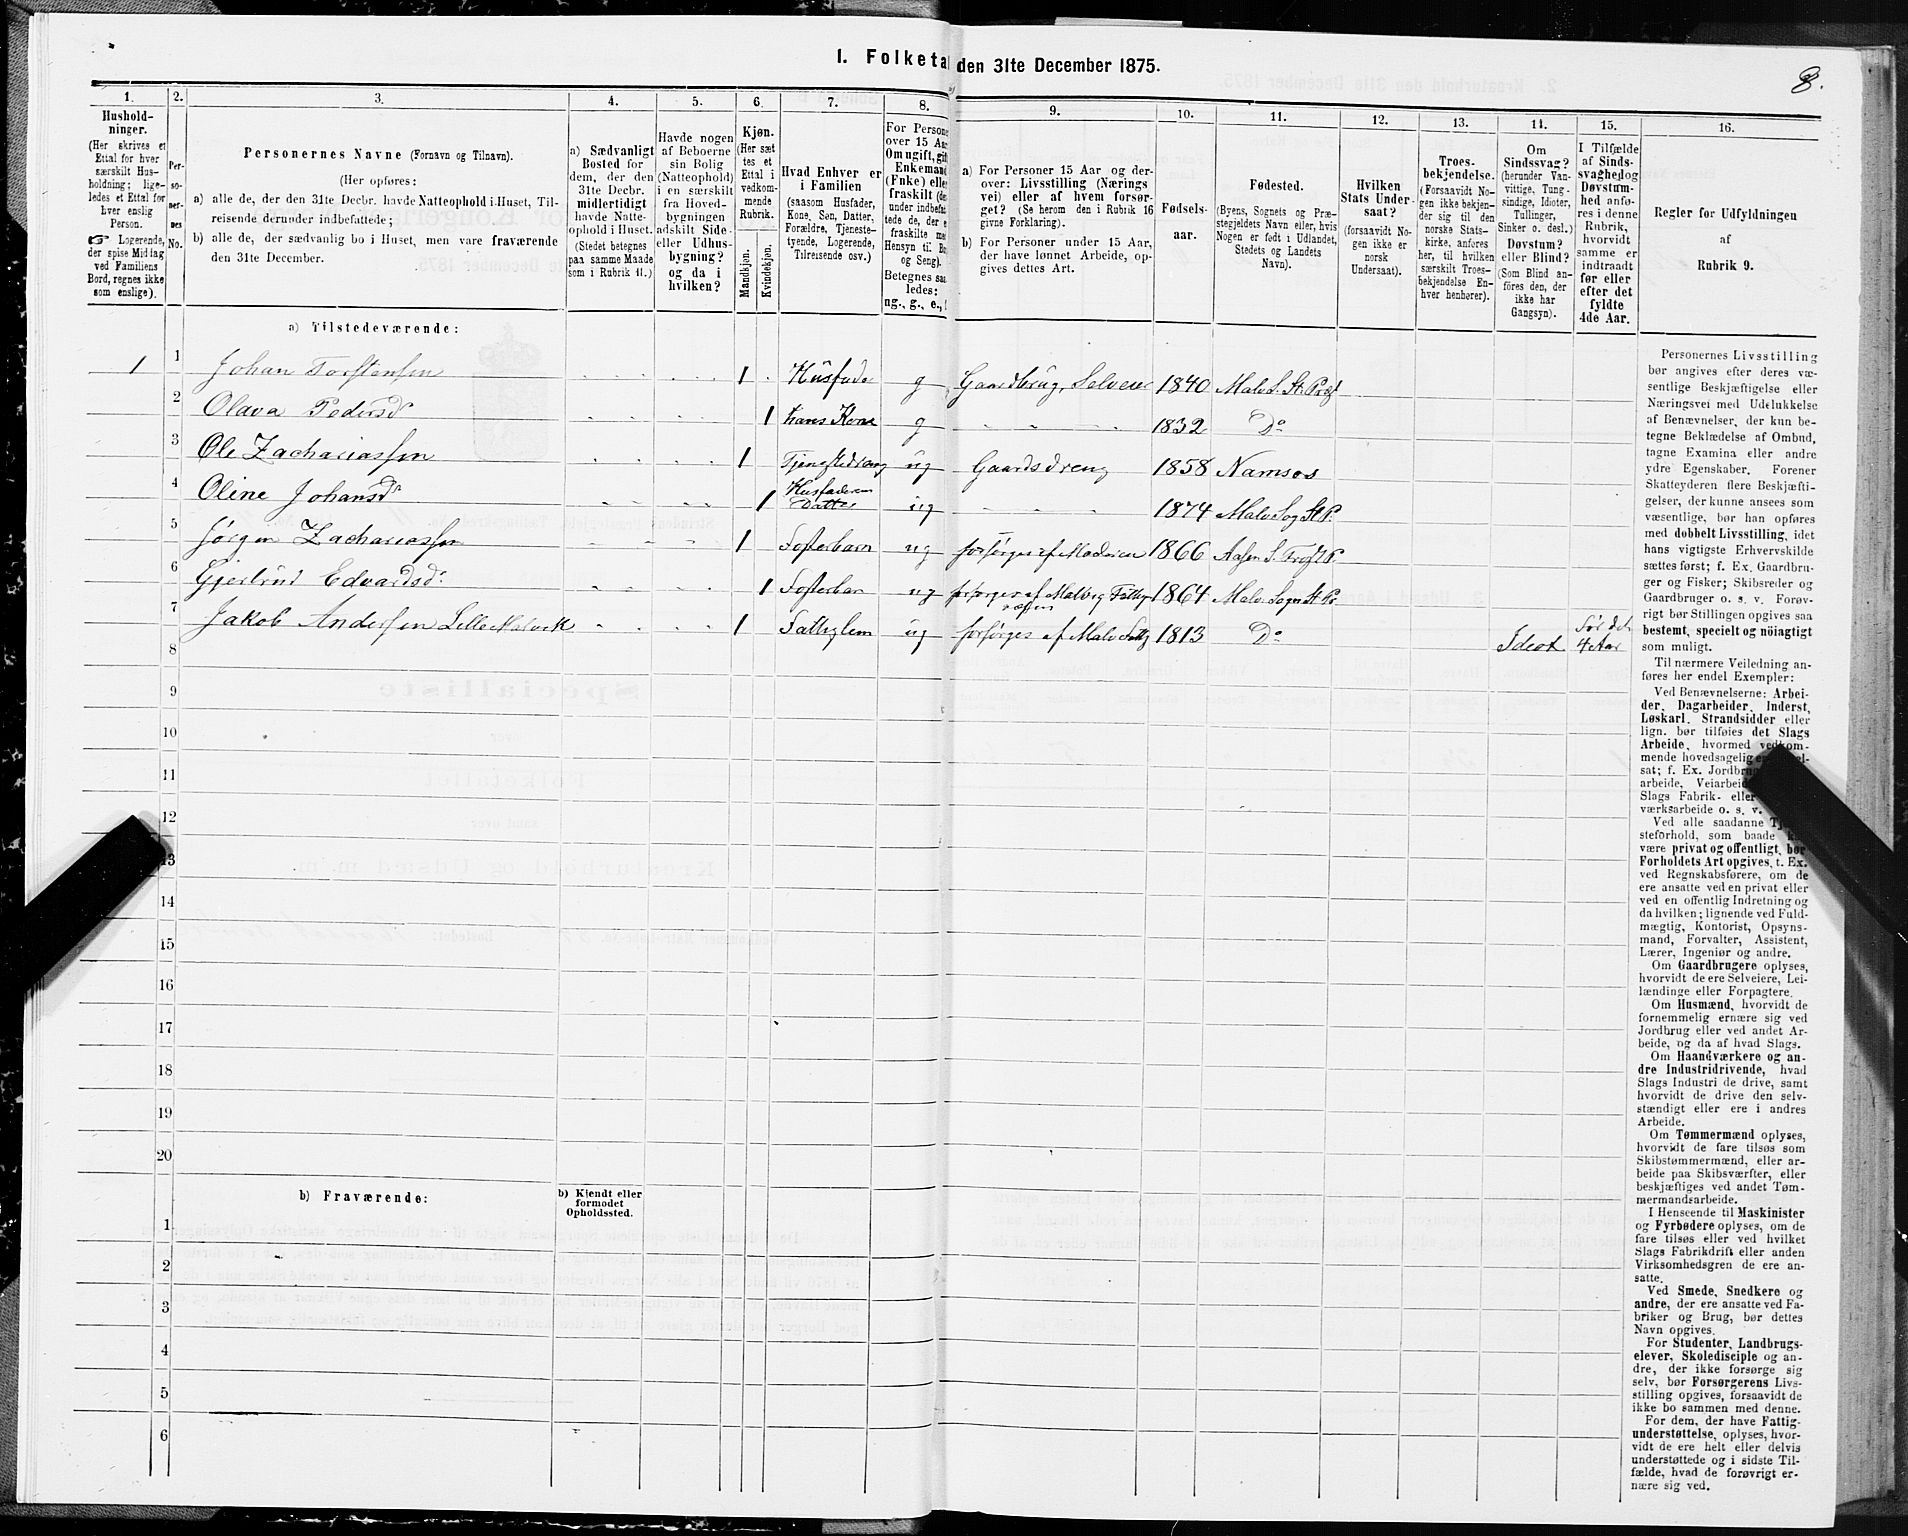 1. Folketal den 31te December 1875.
8.
1. 2. 3. 4. 5. 6. 7. 8. 9. 10. 11. 12. 13. 14. 15. 16.
Hushold-
ninger.
(Her skrives et
Ettal for hver
særskilt Hus-
holdning; lige-
ledes et Ettal for
hver enslig
Person.
☞ Logerende,
der spise Middag
ved Familiens
Bord, regnes ikke
som enslige).
Per-
so-
ner-
nes
No.
Personernes Navne (Fornavn og Tilnavn).
(Her opføres:
a) alle de, der den 31te Decbr. havde Natteophold i Huset, Til-
reisende derunder indbefattede;
b) alle de, der sædvanlig bo i Huset, men vare fraværende
den 31te December.
a) Sædvanligt
Bosted for
dem, der den
31te Decbr.
midlertidigt
havde Natte-
ophold i Huset.
(Stedet betegnes
paa samme Maade
som i Rubrik 11.)
Havde nogen
af Beboerne
sin Bolig
(Natteophold)
i en særskilt
fra Hoved-
bygningen
adskilt Side-
eller Udhus-
bygning?
og da i
hvilken?
Kjøn.
(Her sæt
tes et
Ettal i
vedkom-
mende
Rubrik.
Mandkjøn.
Kvindekjøn.
Hvad Enhver er
i Familien
(saasom Husfader,
Kone, Søn, Datter,
Forældre, Tjeneste-
tyende, Logerende,
Tilreisende osv.)
For Persone
over 15 Aar
Om ugift, gift
Enkemand
(Enke) elle
fraskilt (de
under indbefat
tede de, der e
fraskilte med
Hensyn til Bo
og Seng).
Betegnes saa
ledes:
ug., g., e.,
a) For Personer 15 Aar og der-
over: Livsstilling (Nærings
vei) eller af hvem forsør-
get? (Se herom den i Rubrik 16
givne Forklaring).
b) For Personer under 15 Aar,
der have lønnet Arbeide, op-
gives dettes Art.
Fødsels-
aar.
Fødested.
(Byens, Sognets og Præ-
stegjeldets Navn eller, hvis
Nogen er født i Udlandet,
Stedets og Landets
Navn).
Hvilken
Stats Under-
saat?
(forsaavidt No-
gen ikke er
norsk
Undersaat).
Troes-
bekjendelse.
(Forsaavidt No-
gen ikke bekjen-
der sig til den
norske Stats-
kirke, anføres
her, til hvilken
særskilt Troes-
bekjendelse En-
hver henhører).
Om
Sindssvag?
(herunder Van-
vittige, Tung-
sindige, Idioter,
Tullinger,
Sinker o. desl.)
Døvstum?
eller Blind?
(Som Blind an-
føres den, der
ikke har
Gangsyn).
I Tilfælde
af Sinds-
svaghed og
Døvstum-
hed anfø-
res i denne
Rubrik,
hvorvidt
samme er
indtraadt
før eller
efter det
fyldte
4de Aar.
Regler for Udfyldningen
af
Rubrik 9.
a) Tilstedeværende:
1 1 Johan Torstensen 1 Husfader g Gaardbrug, Selveier 1840 Malv. S. St. Præs
2 Olava Pedersd 1 hans Kone g 1832 Do
3 Ole Zachariassen 1 Tjenestedreng ug Gaardsdreng 1858 Namsos
4 Oline Johansdr 1 Husfaderens Datter ug 1874 Malv Sog St P.
5 Jørgen Zachariassen 1 Fosterbarn ug forsørges af Moderen 1866 Aasen S. Frost P.
6 Gjertrud Edvardsdr 1 Fosterbarn ug forsørges af Malvig Fattigvæsen 1864 Malv. Sogn St Pr
7 Jakob Andersen Lille Malvik 1 Fattiglem ug forsørges af Malv Fattg 1813 Do Ideot Før det 4 Aar
8
9
10
11
12
13
14
15
16
17
18
19
20
b) Fraværende:
b) Kjendt eller
formodet
Opholdssted.
1
2
3
4
5
6
Personernes Livsstilling
bør angives efter deres væ-
sentlige Beskjæftigelse eller
Næringsvei med Udelukkelse
af Benævnelser, der kun be-
tegne Beklædelse af Ombud,
tagne Examina eller andre
ydre Egenskaber. Forener
Skatteyderen flere Beskjæfti-
gelser, der kunne ansees som
væsentlige, bør han opføres
med dobbelt Livsstilling, idet
hans vigtigste Erhvervskilde
sættes først; f. Ex. Gaardbru-
ger og Fisker; Skibsreder og
Gaardbruger o. s. v. Forøv-
rigt bør Stillingen opgives saa
bestemt, specielt og nöiagtigt
som muligt.
Til nærmere Veiledning an-
føres her endel Exempler:
Ved Benævnelserne: Arbei-
der, Dagarbeider, Inderst,
Løskarl, Strandsidder eller
lign. bør tilføies det Slags
Arbeide, hvormed vedkom-
mende hovedsagelig er
sat; f. Ex. Jordbru
arbeide, Veiarbeid
Slags Fabrik- eller
værksarbeide o. s. v.
Ved alle saadanne
steforhold, som baade
være privat og offentligt, bør
Forholdets Art opgives, t. Ex.
ved Regnskabsførere, om de
ere ansatte ved en privat eller
ved en offentlig Indretning og
da hvilken; lignende ved Fuld-
mægtig, Kontorist, Opsyns-
mand, Forvalter, Assistent,
Lærer, Ingeniør og andre.
Om Gaardbrugere oplyses,
hvorvidt de ere Selveiere, Lei-
lændinge eller Forpagtere.
Om Husmænd, hvorvidt de
fornemmelig ernære sig ved
Jordbrug eller ved andet Ar-
beide, og da af hvad Slags.
Om Haandværkere og an-
dre Industridrivende, hvad
Slags Industri de drive, samt
hvorvidt de drive den selv-
stændigt eller ere i andres
Arbeide.
Om Tømmermænd oplyses,
hvorvidt de fare tilsøs som
Skibstømmermænd, eller ar-
beide paa Skibsværfter, eller
beskjæftiges ved andet Tøm-
mermandsarbeide.
I Henseende til Maskinister
og Fyrbødere oplyses, om de
fare tilsøs eller ved hvilket
Slags Fabrikdrift eller anden
Virksomhedsgren de ere an-
satte.
Ved Smede, Snedkere og
andre, der ere ansatte ved Fa-
briker og Brug, bør dettes
Navn opgives.
For Studenter, Landbrugs-
elever, Skoledisciple og an-
dre, der ikke forsørge sig
selv, bør Forsørgerens Livs-
stilling opgives, forsaavidt de
ikke bo sammen med denne.
For dem, der have Fattig-
understøttelse, oplyses, hvor-
vidt de ere helt eller delvis
understøttede og i sidste Til-
fælde, hvad de forøvrigt er-
nære sig ved.